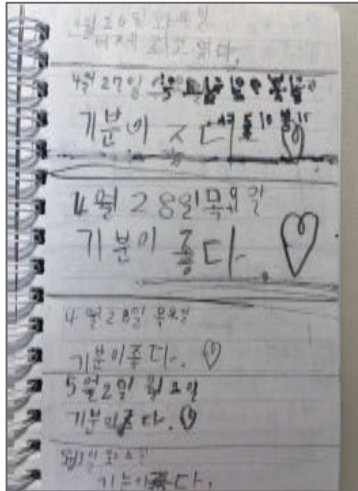 4월26일 화요일
4월27일
기분이 조다
4월28일목요일
기분이 좋다.
4월28일 목요일
기분이조다.
5월2일 월요일
기분이조다.
5월3일 화요일
기분이좋다.